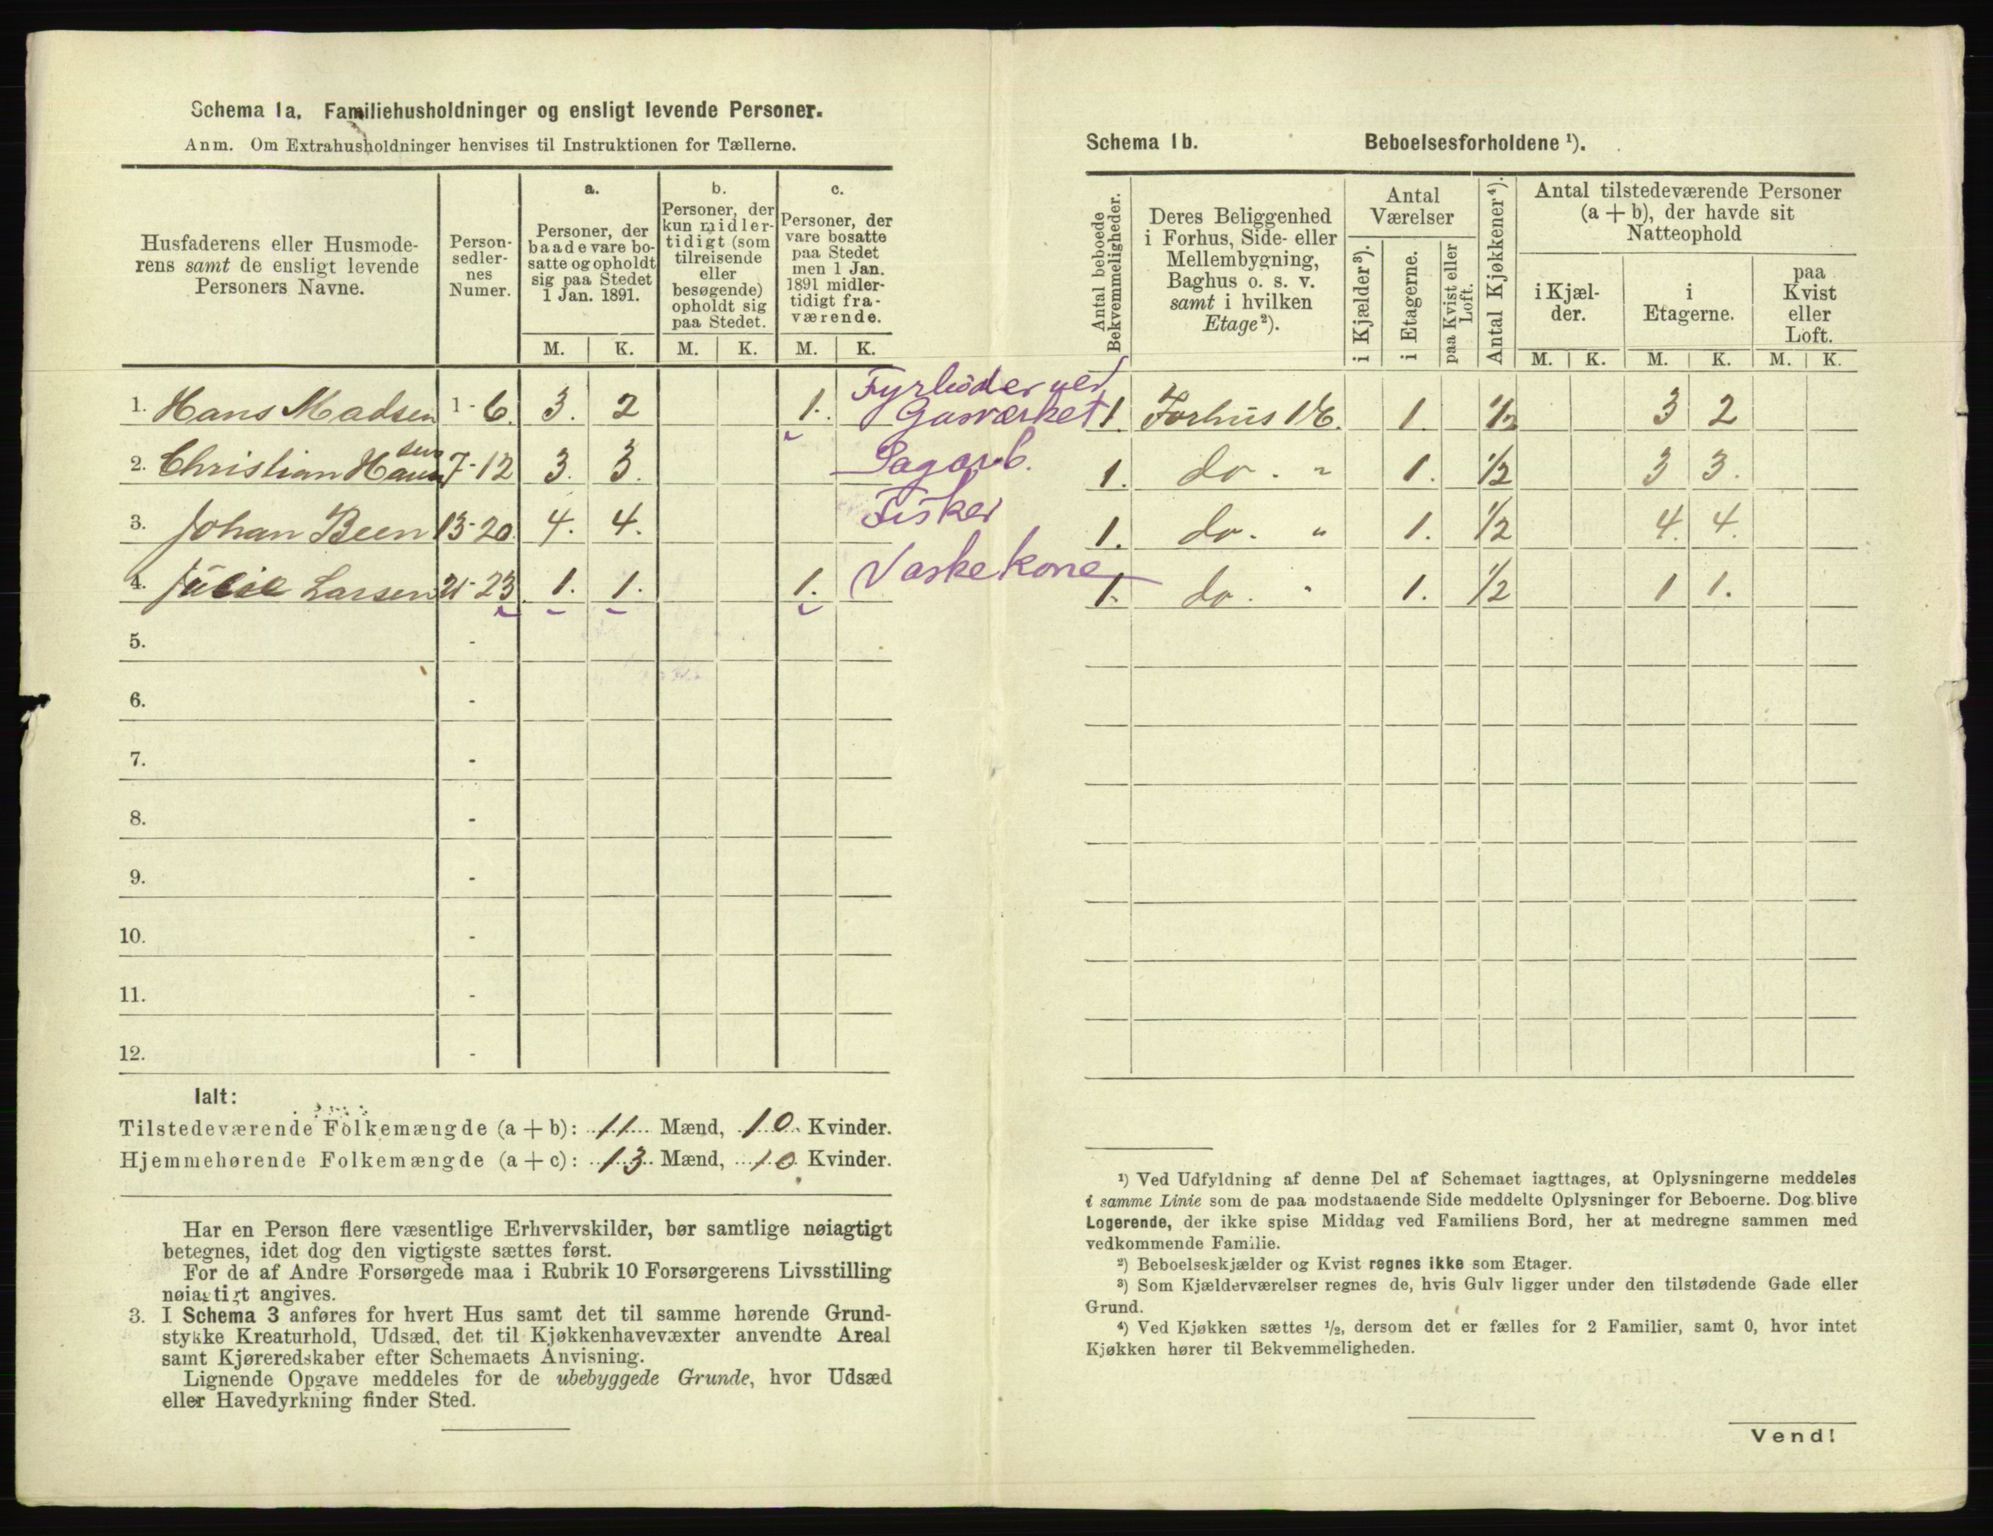 Schema 1a. Familiehusholdninger og ensligt levende Personer.
Anm. Om Extrahusholdninger henvises til Instruktionen for Tællerne.
Husfaderens eller Husmode-
rens samt de ensligt levende
Personers Navne.
Person-
sedler-
nes
Numer.
a.
Personer, der
baade vare bo-
satte og opholdt
sig paa Stedet
1 Jan. 1891.
b.
Personer, der
kun midler-
tidigt (som
tilreisende
eller
besøgende)
opholdt sig
paa Stedet.
c.
Personer, der
vare bosatte
paa Stedet
men 1 Jan.
1891 midler-
tidigt fra-
værende.
M. K. M. K. M. K.
1. Hans Madsen 1-6. 3. 2 1. Fyrbøder ved Gasværket
2. Christian Hansen 7-12 3. 3. Sagarb.
3. Johan Been 13-20. 4. 4. Fisker
4. Julie Larsen 21-23 1. 1. 1. Vaskekone
5. -
6. -
7. -
8. -
9. -
10. -
11. -
12. -
Ialt:
Tilstedeværende Folkemængde (a + b): 11 Mænd, 10 Kvinder.
Hjemmehørende Folkemængde (a + c): 13 Mænd, 10 Kvinder.
Har en Person flere væsentlige Erhvervskilder, bør samtlige nøiagtigt
betegnes, idet dog den vigtigste sættes først.
For de af Andre Forsørgede maa i Rubrik 10 Forsørgerens Livsstilling
nøiagtigt angives.
3. I Schema 3 anføres for hvert Hus samt det til samme hørende Grund-
stykke Kreaturhold, Udsæd, det til Kjøkkenhavevæxter anvendte Areal
samt Kjøreredskaber efter Schemaets Anvisning.
Lignende Opgave meddeles for de ubebyggede Grunde, hvor Udsæd
eller Havedyrkning finder Sted.
Schema 1b. Beboelsesforholdene ¹).
Antal beboede
Bekvemmeligheder.
Deres Beliggenhed
i Forhus, Side- eller
Mellembygning,
Baghus o. s. v.
samt i hvilken
Etage²).
Antal
Værelser
i Kjælder³).
i Etagerne.
paa Kvist eller
Loft.
Antal Kjøkkener⁴).
Antal tilstedeværende Personer
(a + b), der havde sit
Natteophold
i Kjæl-
der.
i
Etagerne.
paa
Kvist
eller
Loft.
M. K. M. K. M. K.
1. Forhus 1 E. 1. 1/2 3 2
1. do. " 1. 1/2 3 3.
1. do. " 1. 1/2 4. 4.
1. do. " 1. 1/2 1 1.
¹) Ved Udfyldning af denne Del af Schemaet iagttages, at Oplysningerne meddeles
i samme Linie som de paa modstaaende Side meddelte Oplysninger for Beboerne. Dog blive
Logerende, der ikke spise Middag ved Familiens Bord, her at medregne sammen med
vedkommende Familie.
²) Beboelseskjælder og Kvist regnes ikke som Etager.
³) Som Kjælderværelser regnes de, hvis Gulv ligger under den tilstødende Gade eller
Grund.
⁴) Ved Kjøkken sættes ½, dersom det er fælles for 2 Familier, samt 0, hvor intet
Kjøkken hører til Bekvemmeligheden.
Vend!